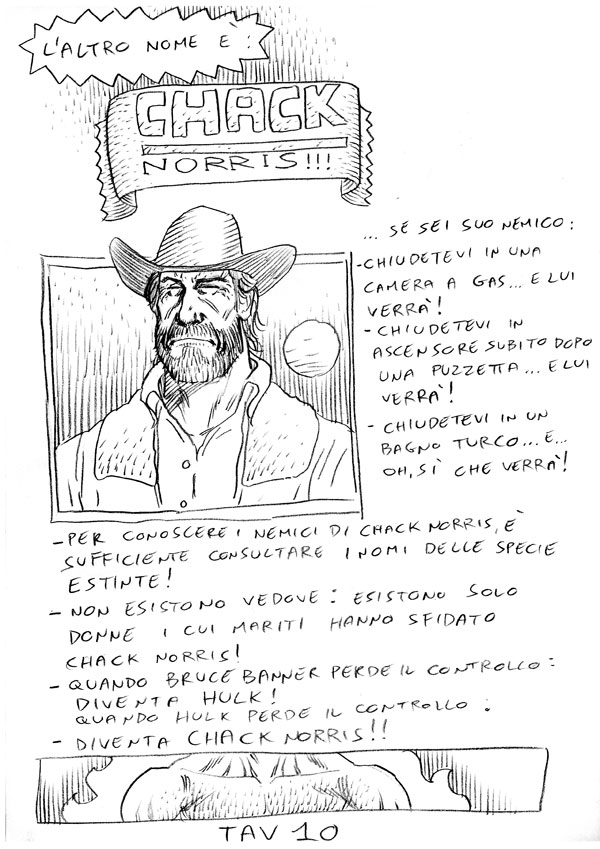 L'ALTRO NOME È:
CHACK
NORRIS!!!
... SE SEI SUO NEMICO:
-CHIUDETEVI IN UNA
CAMERA A GAS... E LUI
VERRÀ!
- CHIUDETEVI IN
ASCENSORE SUBITO DOPO
UNA PUZZETTA... E LUI
VERRÀ!
- CHIUDETEVI IN UN
BAGNO TURCO... E...
OH, SÌ CHE VERRÀ!
- PER CONOSCERE I NEMICI DI CHACK NORRIS, È
SUFFICIENTE CONSULTARE I NOMI DELLE SPECIE
ESTINTE!
- NON ESISTONO VEDOVE: ESISTONO SOLO
DONNE I CUI MARITI HANNO SFIDATO
CHACK NORRIS!
- QUANDO BRUCE BANNER PERDE IL CONTROLLO:
DIVENTA HULK!
QUANDO HULK PERDE IL CONTROLLO:
- DIVENTA CHACK NORRIS!!
TAV 10